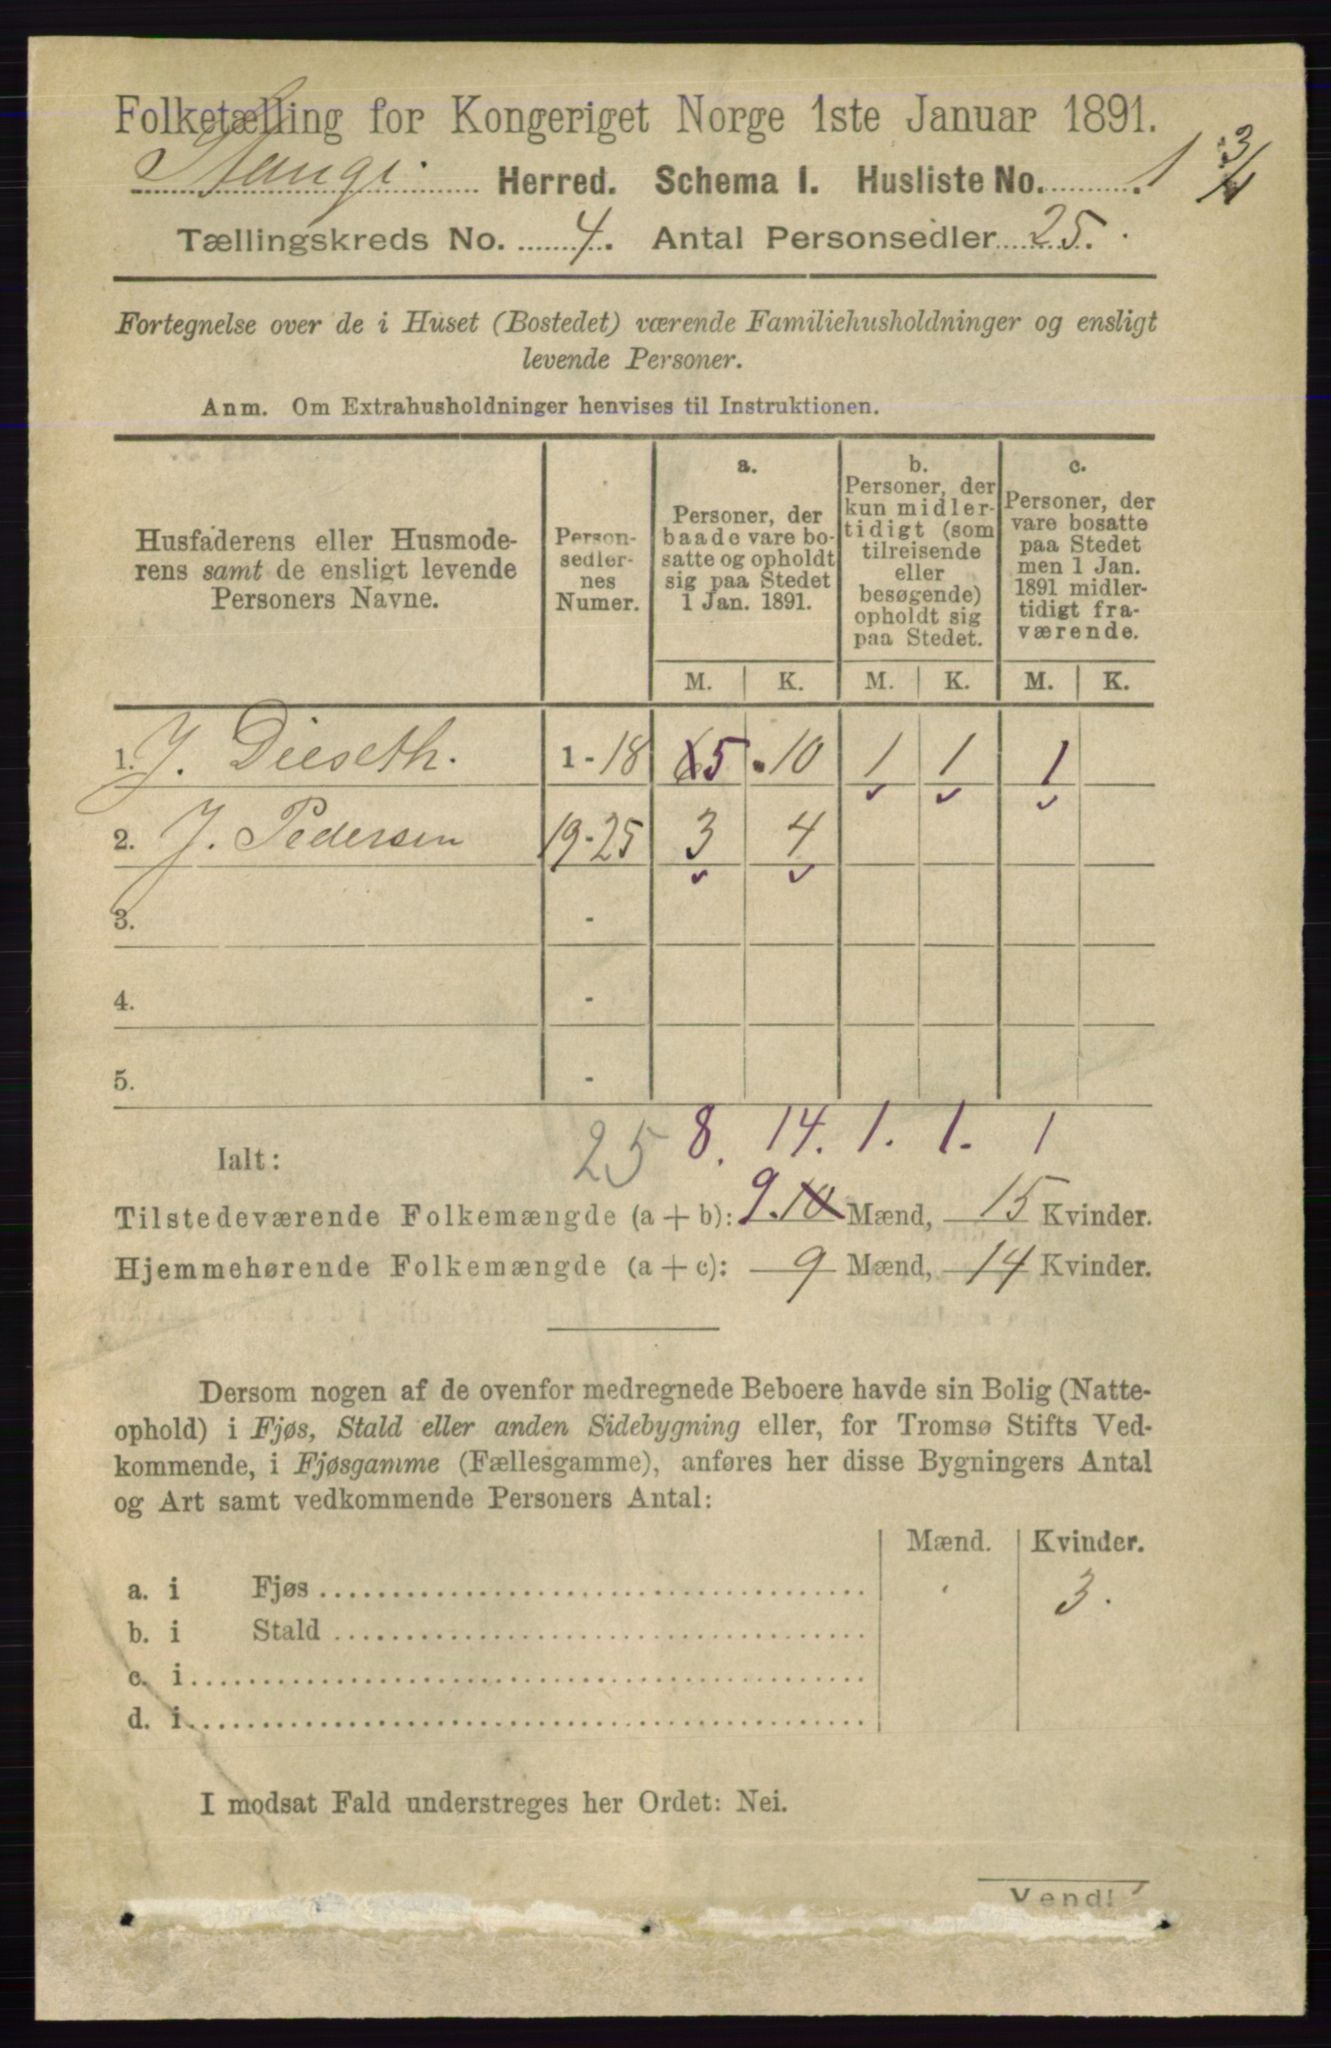 Folketælling for Kongeriget Norge 1ste Januar 1891.
Stange Herred. Schema I. Husliste No. 1 3/4
Tællingskreds No. 4. Antal Personsedler 25.
Fortegnelse over de i Huset (Bostedet) værende Familiehusholdninger og ensligt
levende Personer.
Anm. Om Extrahusholdninger henvises til Instruktionen.
Husfaderens eller Husmode-
rens samt de ensligt levende
Personers Navne.
Person-
sedler-
nes
Numer.
a.
Personer, der
baade vare bo-
satte og opholdt
sig paa Stedet
1 Jan. 1891.
b.
Personer, der
kun midler-
tidigt (som
tilreisende
eller
besøgende)
opholdt sig
paa Stedet.
c.
Personer, der
vare bosatte
paa Stedet
men 1 Jan.
1891 midler-
tidigt fra-
værende.
M. K. M. K. M. K.
1. J. Dieseth. 1-18 6 5 10 1 1 1
2. J. Pedersen 19-25 3 4
3. -
4. -
5. -
Ialt: 25 8. 14. 1. 1. 1
Tilstedeværende Folkemængde (a + b): 9. 10 Mænd, 15 Kvinder.
Hjemmehørende Folkemængde (a + c): 9 Mænd, 14 Kvinder.
Dersom nogen af de ovenfor medregnede Beboere havde sin Bolig (Natte-
ophold) i Fjøs, Stald eller anden Sidebygning eller, for Tromsø Stifts Ved-
kommende, i Fjøsgamme (Fællesgamme), anføres her disse Bygningers Antal
og Art samt vedkommende Personers Antal:
Mænd. Kvinder.
a. i Fjøs 3.
b. i Stald
c. i
d. i
I modsat Fald understreges her Ordet: Nei.
Vend!